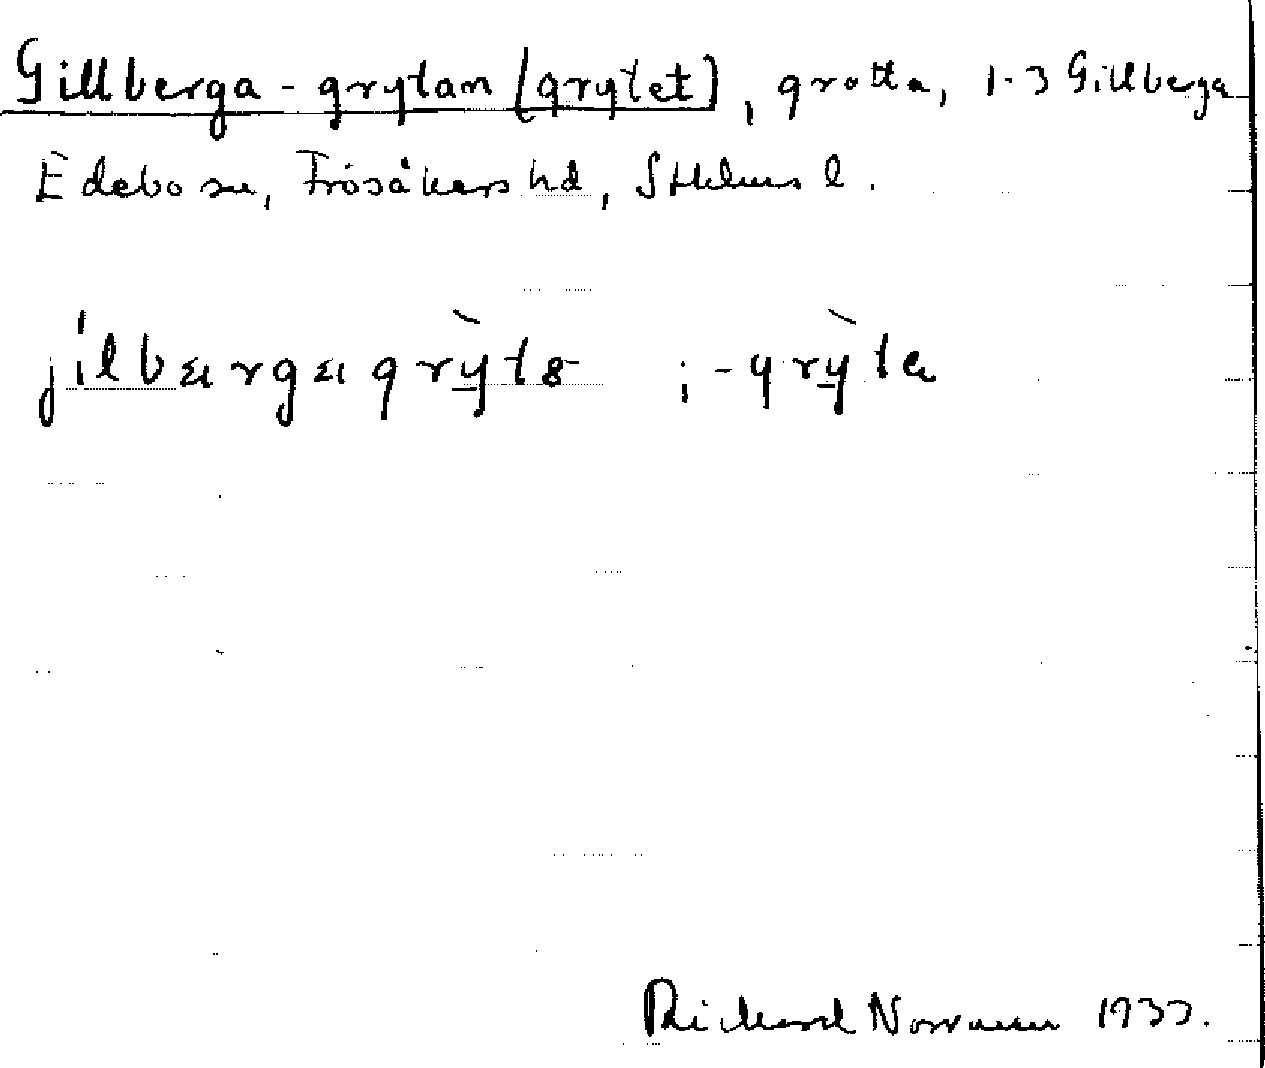 Gillberga-grytan (grytet), grotta, 1-3 Gillberga
Edebo sn, Frösåkers hd, Sthlms l.
jilbargagrỳtə ; -grỳta
Rickard Norrman 1933.